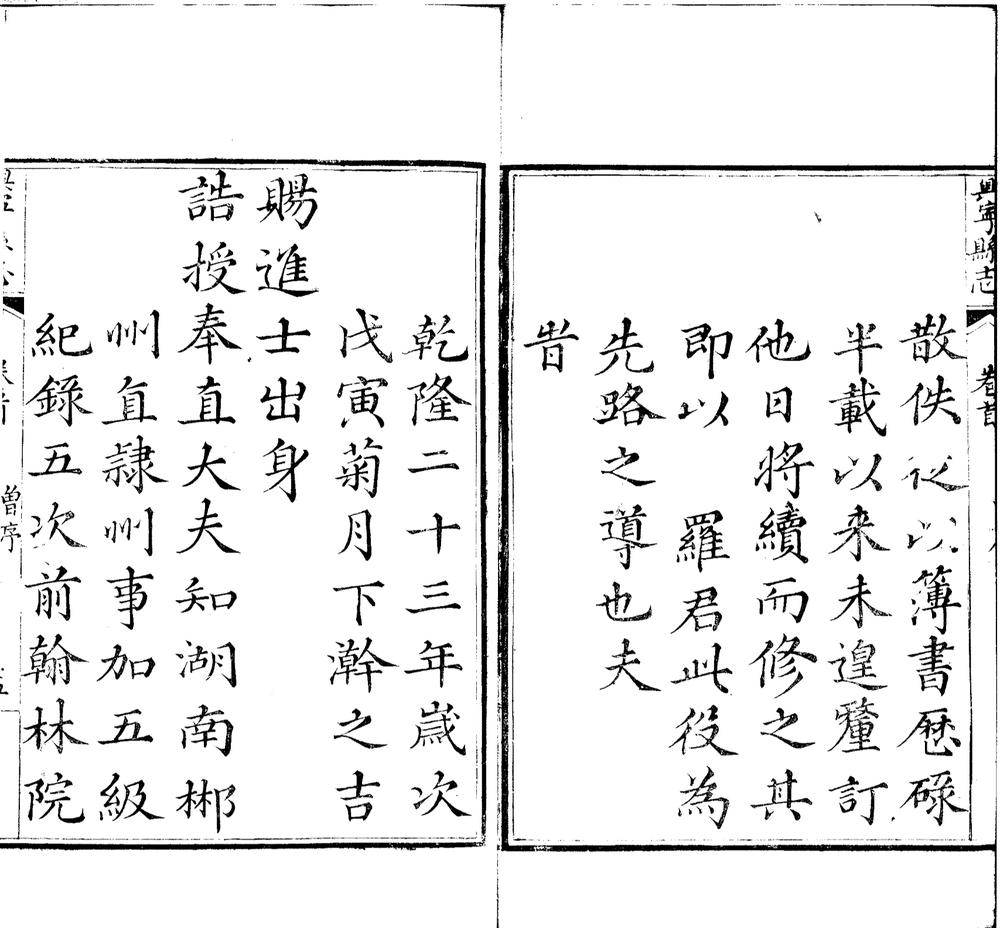 興寧縣志
卷首
散佚從以簿書歷碌
半載以来未遑釐訂
他日将續而修之其
即以 羅君此役為
先路之導也夫
旹
乾隆二十三年歲次
戊寅菊月下澣之吉
賜進士出身
誥授奉直大夫知湖南郴
州直隸州事加五級
紀錄五次前翰林院
曾序